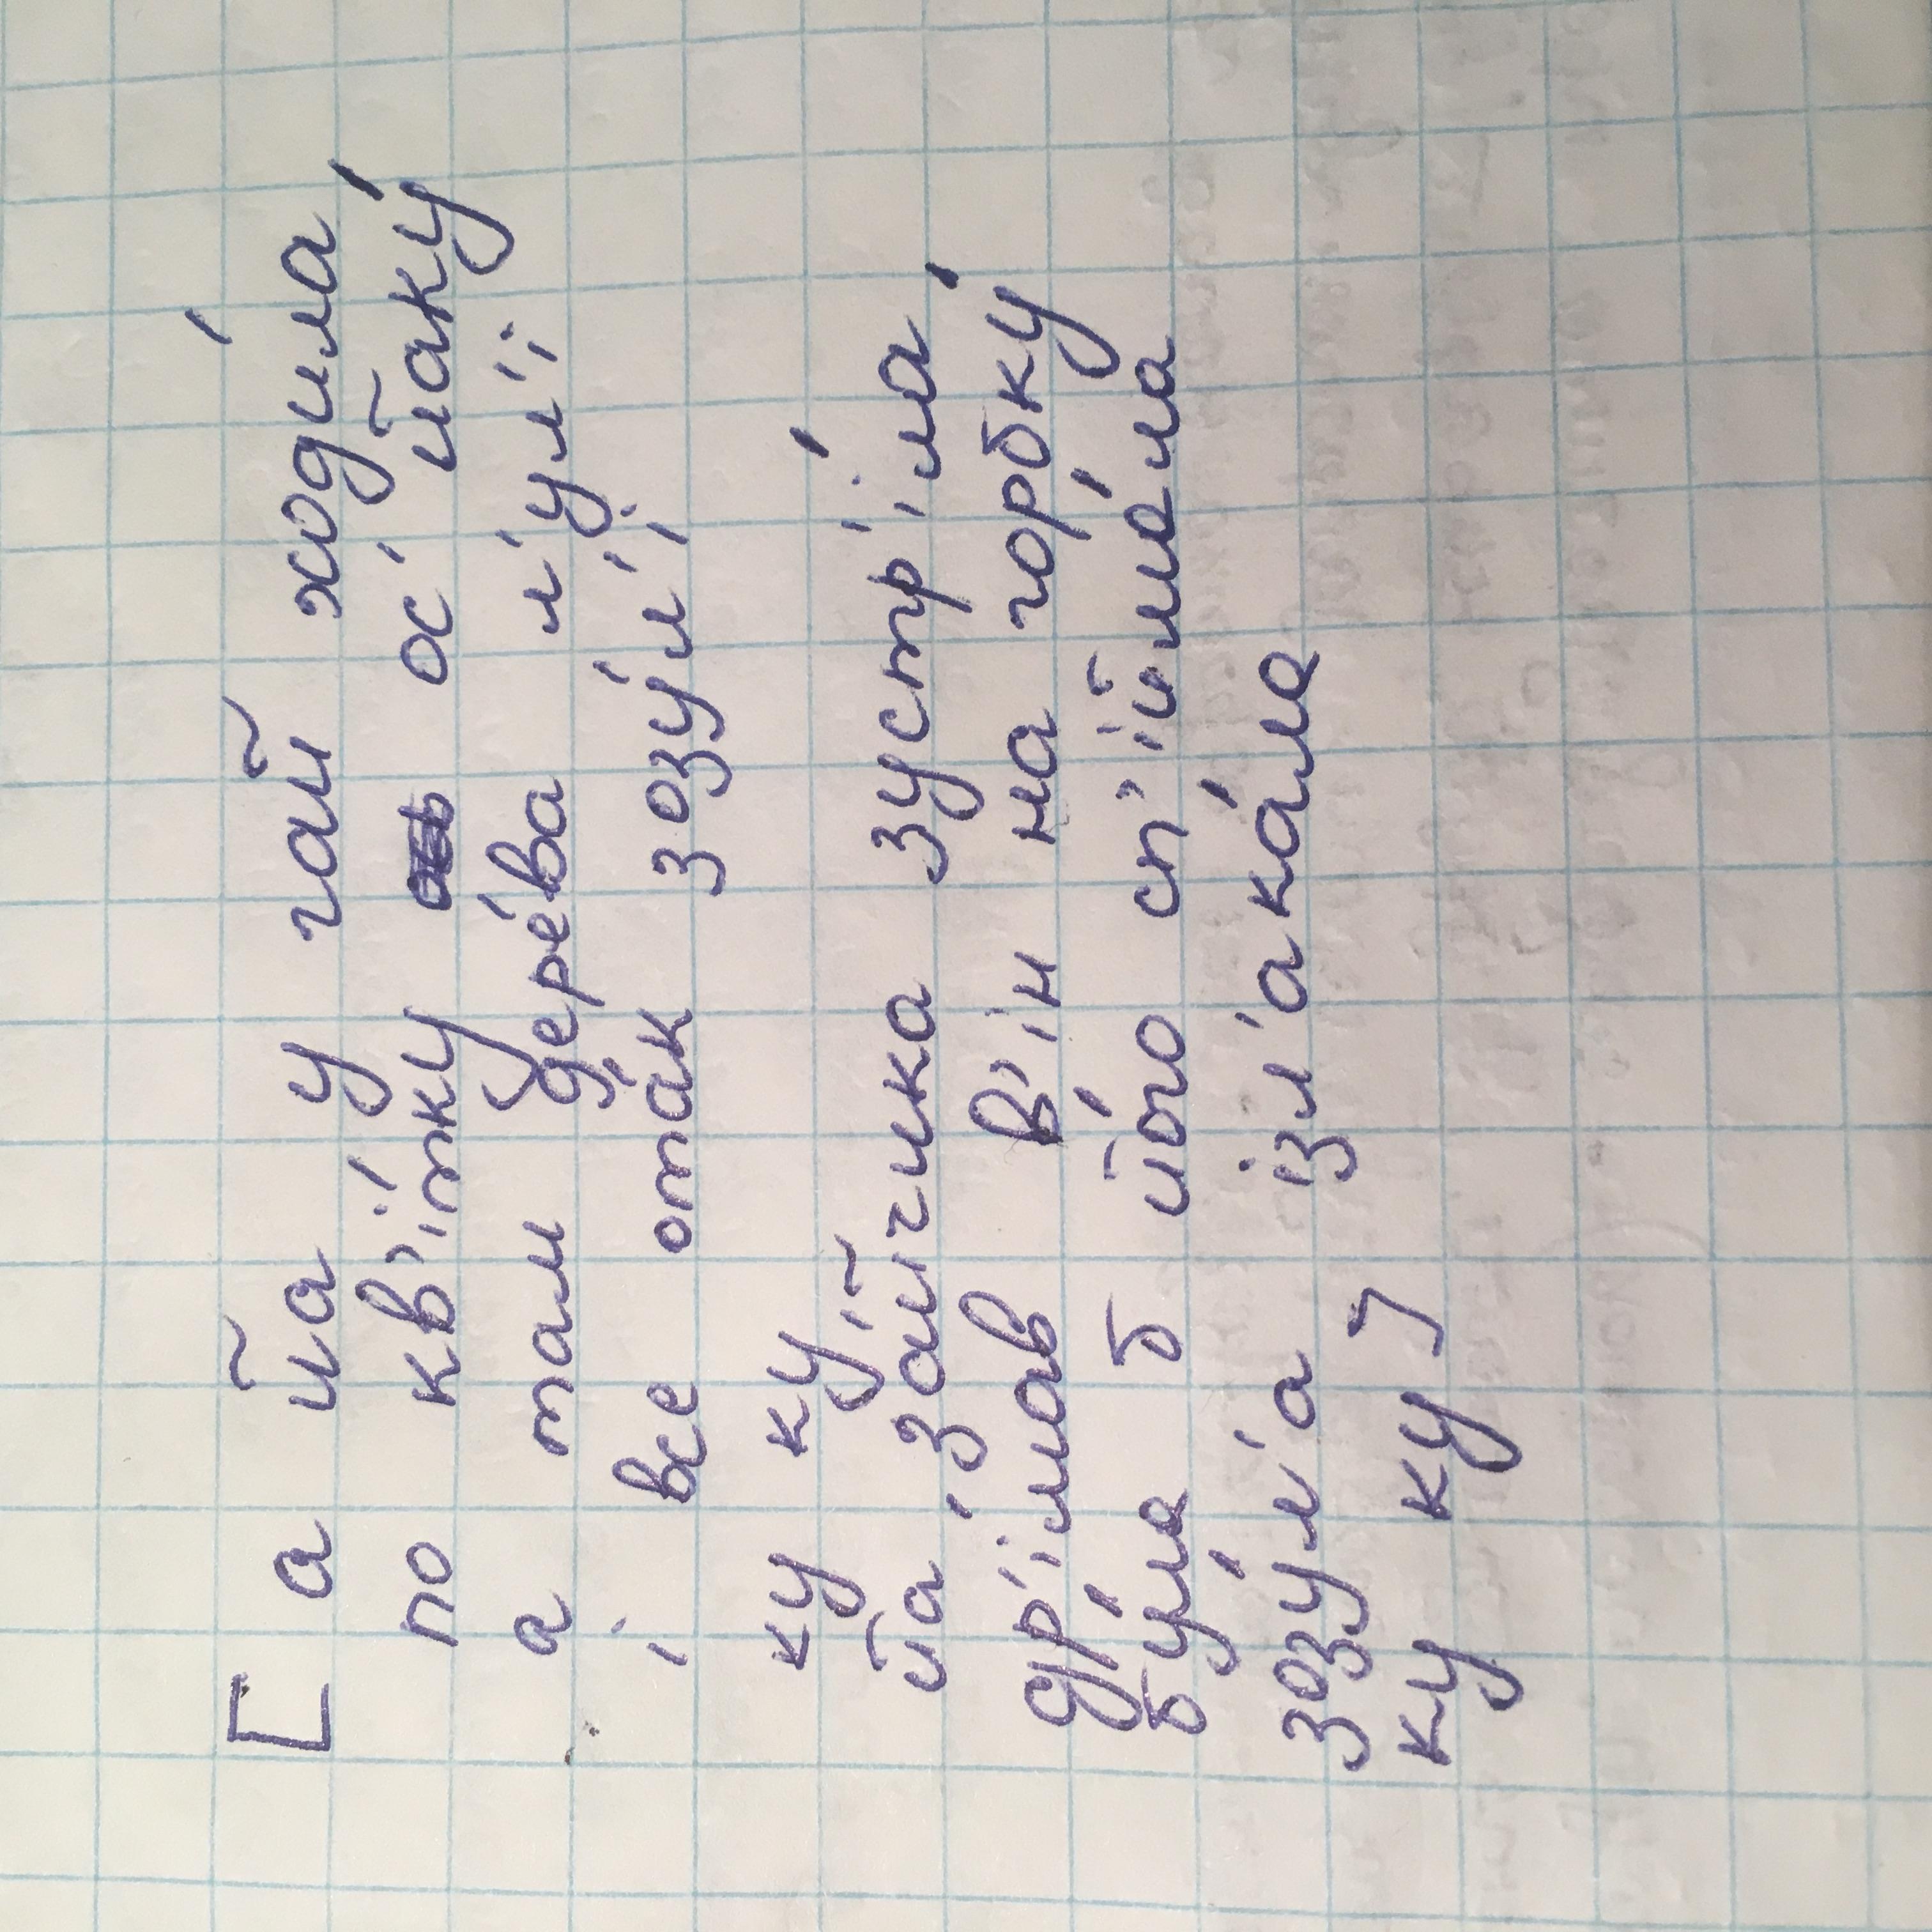 [ а йа у гай ходи́ла
по кв'і́тку ос' йаку́
а там дере́ва л'ул'і
і все ота́к зозу́л'і
ку ку
йа за́йчика зустр'і́ла
др'іма́в в'ін на горбку́
бу́ла б йо́го сп'ійма́ла
зозу́л'а ізл'ака́ла
ку ку ]